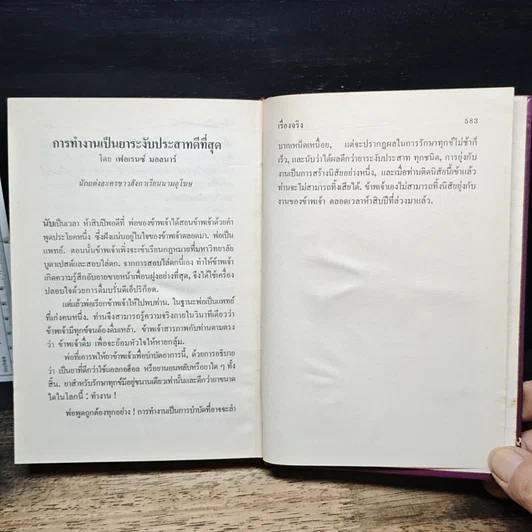 การทำงานเป็นยาระงับประสาทดีที่สุด
โดย เฟอเรนซ์ มอลนาร์
นักแต่งละครชาวฮังกาเรียนนามอุโฆษ
นับเป็นเวลา ห้าสิบปีพอดีที่ พ่อของข้าพเจ้าได้สอนข้าพเจ้าด้วยคำ
พูดประโยคหนึ่ง ซึ่งฝังแน่นอยู่ในใจของข้าพเจ้าตลอดมา. พ่อเป็น
แพทย์. ตอนนั้นข้าพเจ้าเพิ่งจะเข้าเรียนกฎหมายที่มหาวิทยาลัย
บูดาเปสต์และสอบไล่ตก. จากการสอบไล่ตกนี้เอง ทำให้ข้าพเจ้า
เกิดความรู้สึกอับอายขายหน้าเพื่อนฝูงอย่างที่สุด, จึงได้ใช้เครื่อง
ปลอบใจด้วยการดื่มบรั่นดีเอ๊ปริก๊อต.
แต่แล้วพ่อเรียกข้าพเจ้าให้ไปพบท่าน. ในฐานะพ่อเป็นแพทย์
ที่เก่งคนหนึ่ง. ท่านจึงสามารถรู้ความจริงภายในวินาทีเดียวว่า
ข้าพเจ้ามีทุกข์จนต้องดื่มเหล้า. ข้าพเจ้าสารภาพกับท่านตามตรง
ว่า ข้าพเจ้าดื่ม เพื่อจะย้อมหัวใจให้หายกลุ้ม.
พ่อที่เคารพให้ยาข้าพเจ้าเพื่อบำบัดอาการนี้, ด้วยการอธิบาย
ว่า เป็นยาที่ดีกว่าใช้แอลกอฮ็อล หรือยานอนหลับหรือยาใด ๆ ทั้ง
สิ้น. ยาสำหรับรักษาทุกข์มีอยู่ขนานเดียวเท่านั้นและดีกว่ายาขนาด
ใดในโลกนี้ : ทำงาน !
พ่อพูดถูกต้องทุกอย่าง ! การทำงานเป็นการบำบัดที่อาจจะลำ
เรื่องจริง 583
บากเหน็ดเหนื่อย, แต่จะปรากฏผลในการรักษาทุกข์ไม่ช้าก็
เร็ว, และนับว่าได้ผลดีกว่ายาระงับประสาท ทุกชนิด, การยุ่งกับ
งานเป็นการสร้างนิสัยอย่างหนึ่ง, และเมื่อท่านติดนิสัยนี้เข้าแล้ว
ท่านจะไม่สามารถทิ้งเสียได้. ข้าพเจ้าเองไม่สามารถทิ้งนิสัยยุ่งกับ
งานของข้าพเจ้า ตลอดเวลาห้าสิบปีที่ล่วงมาแล้ว.